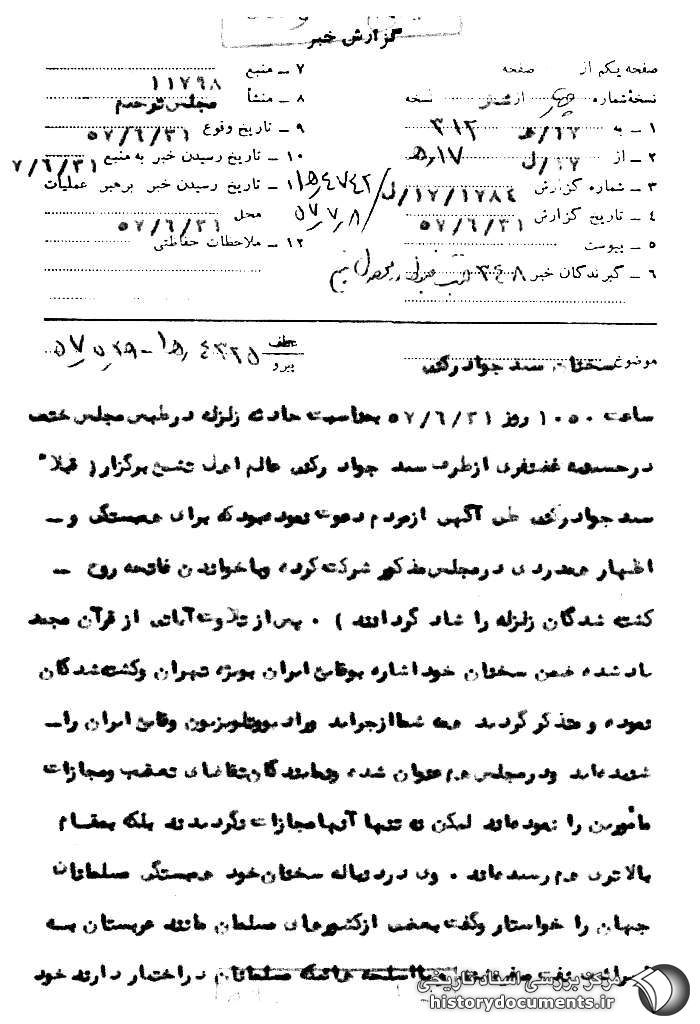 گزارش خبر
صفحه یکم از صفحه
نسخهٔ شماره از نسخه
۱ ـ به ۱۷/ه ۳۱۲
۲ ـ از ۱۷/ل
۳ ـ شماره گزارش ۱۷/۱۷۸٤/ل
٤ ـ تاریخ گزارش ۵۷/٦/۳۱
۵ ـ پیوست
٦ ـ گیرندگان خبر ۳٤۸
۷ ـ منبع ۱۱۷۹۸
۸ ـ منشأ مجلس ترحیم
۹ ـ تاریخ وقوع ۵۷/٦/۳۱
۱۰ ـ تاریخ رسیدن خبر به منبع ۷/٦/۳۱
۱۱ ـ تاریخ رسیدن خبر برهبر عملیات
محل ۵۷/٦/۳۱
۱۲ ـ ملاحظات حفاظتی
۵۷/۷/۸
موضوع سخنان سید جواد رکنی
عطف
پیرو
ساعت ۱۰۵۰ روز ۵۷/٦/۳۱ بمناسبت حادثه زلزله در طبس مجلس ختمی
در حسینیه غضنفری از طرف سید جواد رکنی عالم اهل تشیع برگزار ( قبلا"
سید جواد رکنی طی آگهی از مردم دعوت نموده بود که برای همبستگی و ــ
اظهار همدردی در مجلس مذکور شرکت کرده و با خواندن فاتحه روح ــ
کشته شدگان زلزله را شاد گردانند ) ۰ پس از تلاوت آیاتی از قرآن مجید
یاد شده ضمن سخنان خود اشاره بوقایع ایران بویژه تهران وکشته شدگان
نموده و متذکر گردید همه شما از جراید و رادیو و تلویزیون وقایع ایران را ــ
شنیده اید و در مجلس هم عنوان شده و نمایندگان تقاضای تعقیب و مجازات
مأمورین را نموده اند لیکن نه تنها آنها مجازات نگردیدند بلکه بمقام
بالاتری هم رسیده اند ۰ وی در دنباله سخنان خود همبستگی مسلمانان
جهان را خواستار وگفت بعضی از کشورهای مسلمان مانند عربستان به
اسلحه مسلمانان در اختیار دارند خود
مرکز بررسی اسناد تاریخی
historydocuments.ir